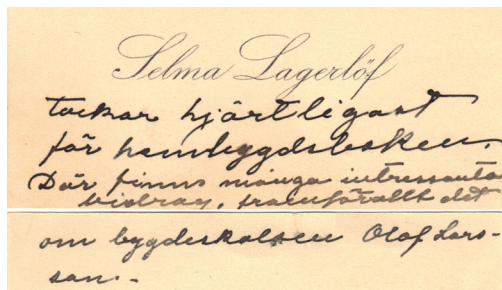 Selma Lagerlöf
tackar hjärtligast
för hembygdsboken.
Där finns många intressanta
bidrag, framförallt det
om bygdeskalden Olof Lars-
son.